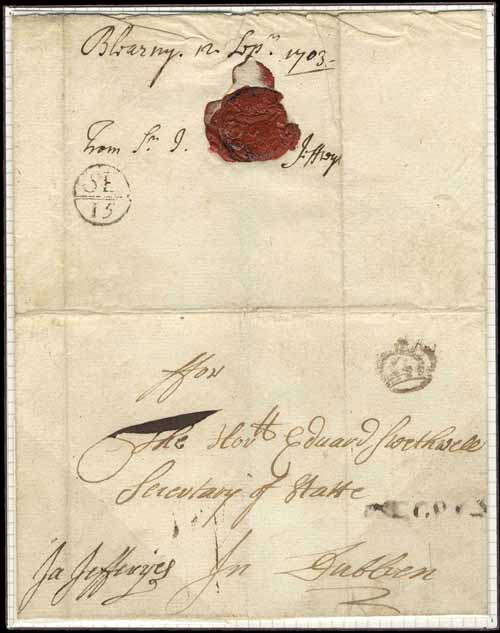 Blarny. 12 Sepr. 1703.
From Sr. J. Jeffreys
SE
15
ffor
The Honll Eduard Southwell
Secretary of Statte
Ja Jefferyes In Dubben